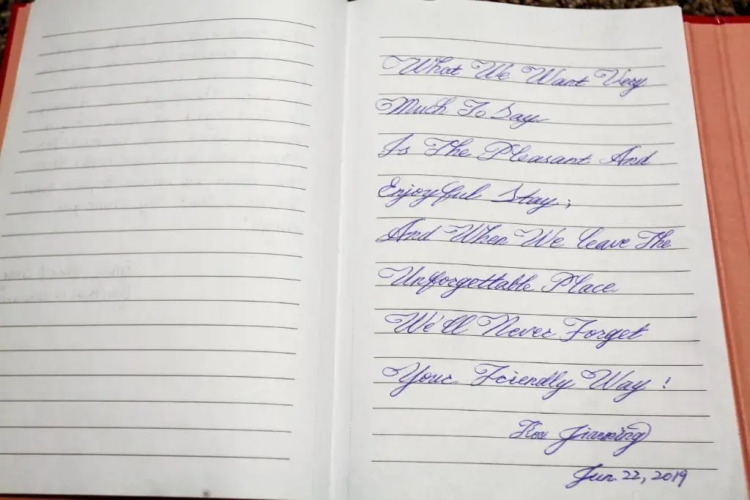 What We Want Very
Much To Say
Is The Pleasant And
Enjoyful Stay;
And When We leave The
Unforgettable Place
We'll Never Forget
Your Friendly Way !
Jianming
Jun. 22, 2019